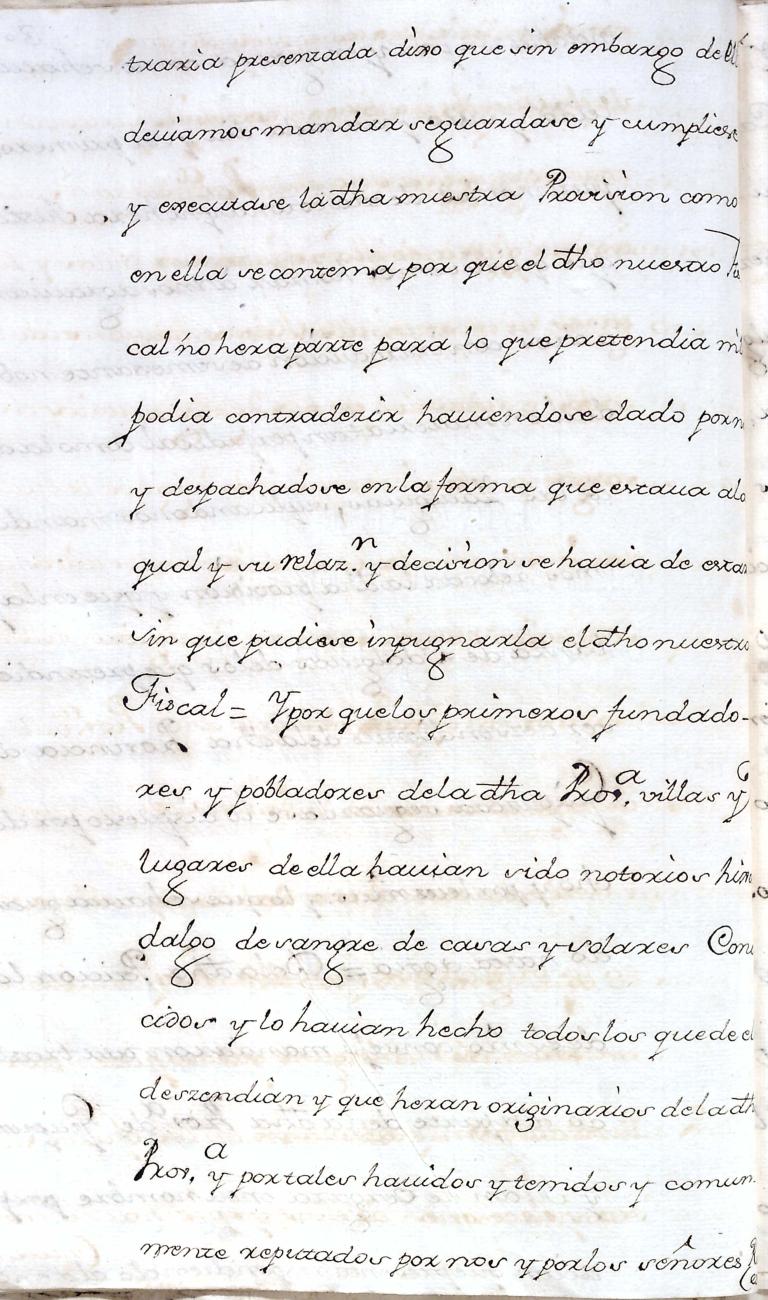 traria presentada dixo que sin embargo de ell
deuiamos mandar se guardase y cumpliese
y executase la dha nuestra Provision como
en ella se contenia por que el dho nuestro Fis
cal no hera parte para lo que pretendia ni
podia contradezir hauiendose dado por n
y despachadose en la forma que estaua a lo
qual y su relaz.n y decision se hauia de estar
sin que pudiese inpugnarla el dho nuestro
Fiscal = Y por que los primeros fundado-
res y pobladores de la dha Prov.a villas y
lugares de ella hauian sido notorios hixo
dalgo de sangre de casas y solares Cono
cidos y lo hauian hecho todos los que de el
deszendian y que heran originarios de la dh
Prov.a y por tales hauidos y tenidos y comun
mente reputados por nos y por los señores